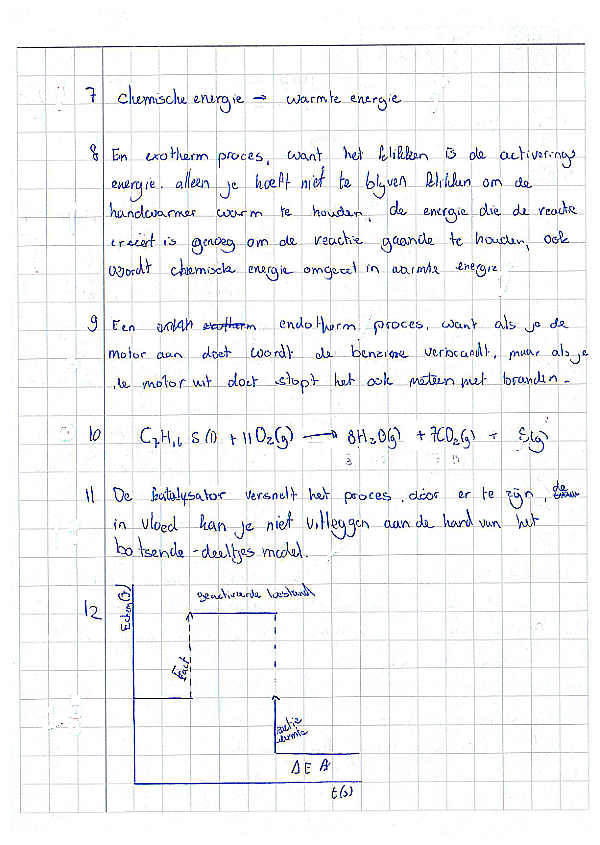 7 chemische energie → warmte energie
8 En exotherm proces, want het klikken is de activerings
energie. alleen je hoeft niet te blyven klikken om de
handwarmer warm te houden, de energie die de reactie
creëert is genoeg om de reactie gaande te houden, ook
wordt chemische energie omgezet in warmte energie
9 Een endotherm proces, want als je de
motor aan doet wordt de benzine verbrandt, maar als je
de motor uit doet stopt het ook meteen met branden.
10 C7H16 S (l) + 11O2(g) → 8H2O(g) + 7CO2(g) + S(g)
11 De katalysator versnelt het proces door er te zijn, de
in vloed kan je niet uitleggen aan de hand van het
botsende-deeltjes model.
12 Echem(J) geactiveerde toestand
Eact
reactie
warmte
ΔE
t(s)